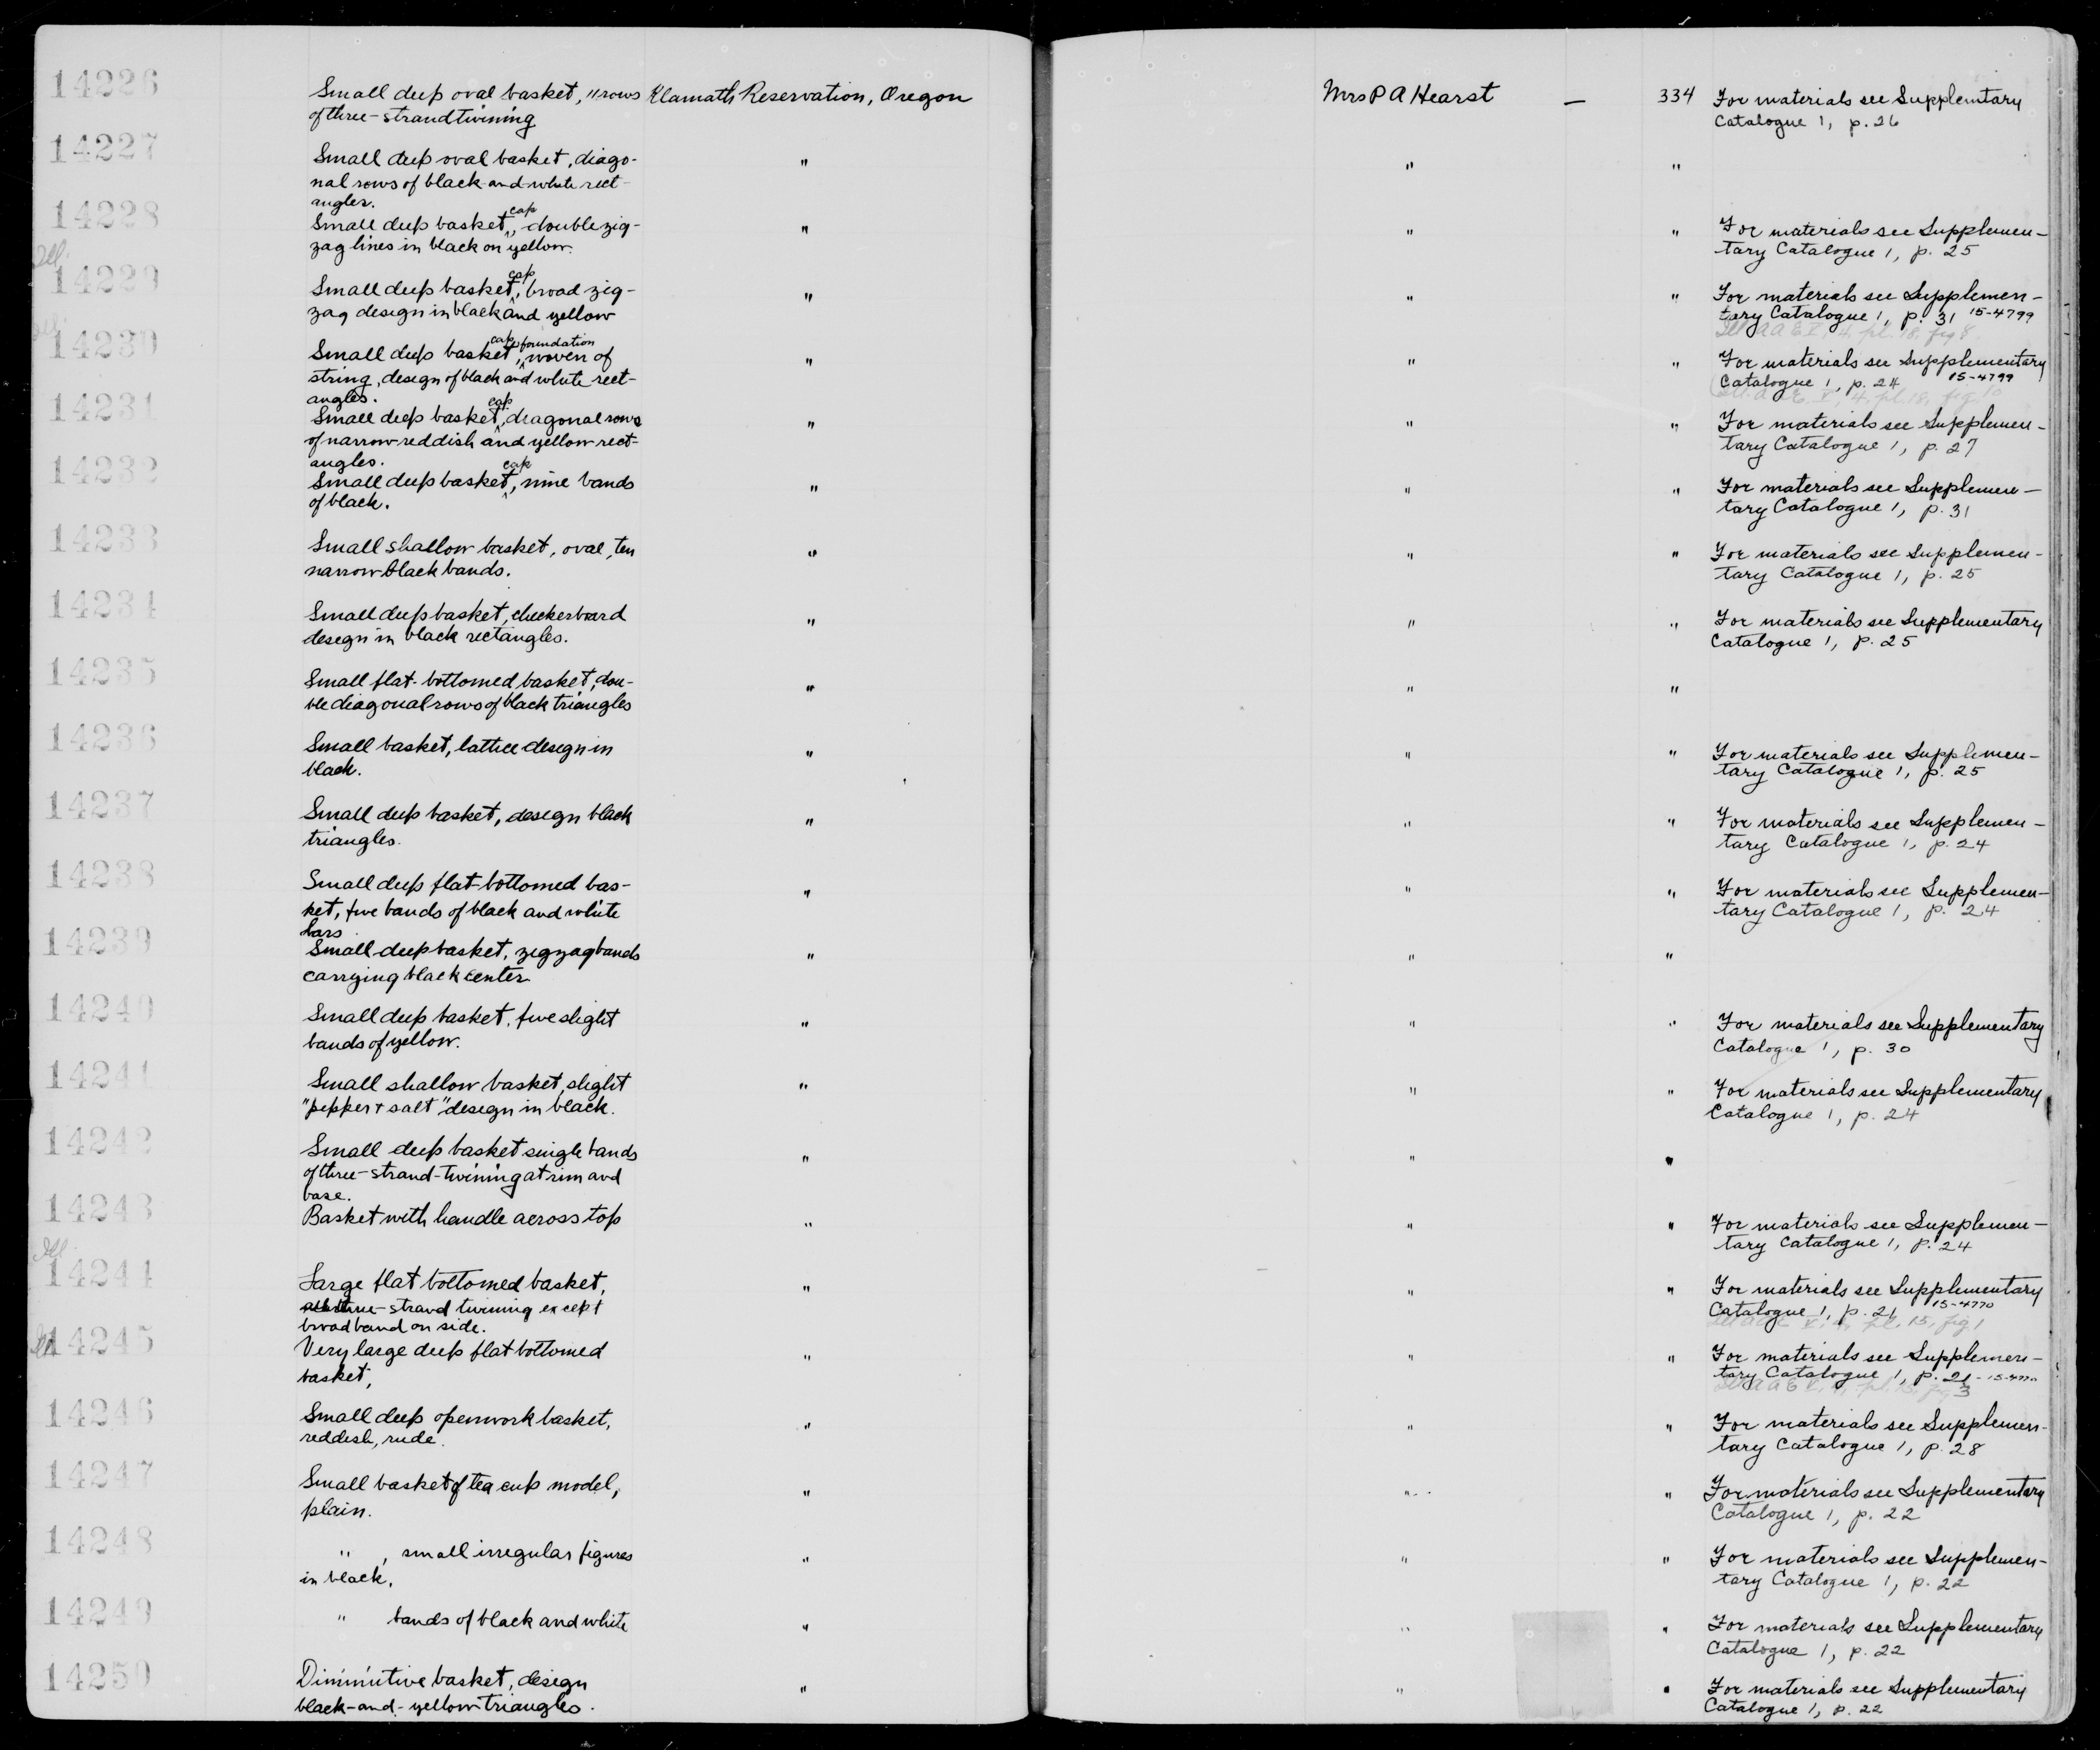 14226 Small deep oval basket, 11 rows Klamath Reservation, Oregon Mrs P A Hearst — 334 For materials see Supplemtary
of three-strand twining Catalogue 1, p. 26
14227 Small deep oval basket, diago- " " "
nal rows of black-and-white rect-
angles.
14228 Small deep basket, cap, double zig- " " " For materials see Supplemen-
zag lines in black on yellow. tary Catalogue 1, p. 25
Ill.
14229 Small deep basket, cap, broad zig- " " " For materials see Supplemen-
zag design in black and yellow tary Catalogue 1, p. 31 15-4799
pl. 18, fig 8
14230 Small deep basket, cap, foundation woven of " " " For materials see Supplementary
string, design of black and white rect- Catalogue 1, p. 24 15-4799
angles. pl. 18, fig.
14231 Small deep basket, cap, diagonal rows " " " For materials see Supplemen-
of narrow reddish and yellow rect- tary Catalogue 1, p. 27
angles.
14232 Small deep basket, cap, nine bands " " " For materials see Supplemen-
of black. tary Catalogue 1, p. 31
14233 Small shallow basket, oval, ten " " " For materials see Supplemen-
narrow black bands. tary Catalogue 1, p. 25
14234 Small deep basket, checkerboard " " " For materials see Supplementary
design in black rectangles. Catalogue 1, p. 25
14235 Small flat-bottomed basket, dou- " " "
ble diagonal rows of black triangles
14236 Small basket, lattice design in " " " For materials see Supplemen-
black. tary Catalogue 1, p. 25
14237 Small deep basket, design black " " " For materials see Supplemen-
triangles. tary Catalogue 1, p. 24
14238 Small deep flat-bottomed bas- " " " For materials see Supplemen-
ket, five bands of black and white tary Catalogue 1, p. 24
bars
14239 Small deep basket, zigzag bands " " "
carrying black center
14240 Small deep basket, five slight " " " For materials see Supplementary
bands of yellow. Catalogue 1, p. 30
14241 Small shallow basket, slight " " " For materials see Supplementary
"pepper + salt" design in black. Catalogue 1, p. 24
14242 Small deep basket single bands " " "
of three-strand-twining at rim and
base.
14243 Basket with handle across top " " " For materials see Supplemen-
tary Catalogue 1, p. 24
Ill.
14244 Large flat bottomed basket, " " " For materials see Supplementary
three-strand twining except Catalogue 1, p. 21 15-4770
broad band on side. pl. 15, fig. 1
14245 Very large deep flat bottomed " " " For materials see Supplemen-
basket, tary Catalogue 1, p. 21 - 15-4770
fig. 3
14246 Small deep openwork basket, " " " For materials see Supplemen-
reddish, rude. tary Catalogue 1, p. 28
14247 Small basket of tea cup model, " " " For materials see Supplementary
plain. Catalogue 1, p. 22
14248 " , small irregular figures " " " For materials see Supplemen-
in black. tary Catalogue 1, p. 22
14249 " bands of black and white " " " For materials see Supplementary
Catalogue 1, p. 22
14250 Diminutive basket, design " " " For materials see Supplementary
black-and-yellow triangles. Catalogue 1, p. 22